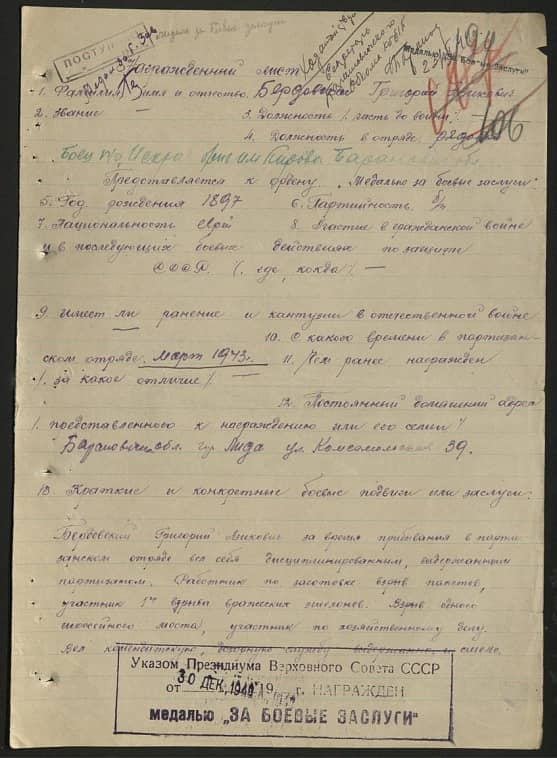 ПОСТУП
Медаль за боевые заслуги
Медалью "За Боевые Заслуги"
Награжденный лист
1. Фамилия, имя и отчество. Бердовский Григорий Ицкович
2. Звание — 3. Должность и часть до войны —
4. Должность в отряде. рядовой
106
Боец п/о Искра бриг. им Кирова Барановичской
Представляется к ордену "Медалью за боевые заслуги"
5. Год рождения 1897 6. Партийность б/п
7. Национальность еврей 8. Участие в гражданской войне
и в последующих боевых действиях по защите
СССР. (где, когда) —
9. Имеет ли ранение и контузии в отечественной войне
— 10. С какого времени в партизан-
ском отряде. март 1943 г. 11. Чем ранее награжден
/. за какое отличие /. —
12. Постоянный домашний адрес
/. представленного к награждению или его семьи /
Барановичск. обл. гор. Лида ул. Комсомольская 39.
13. Краткие и конкретные боевые подвиги или заслуги:
Бердовский Григорий Ицкович за время прибывания в парти
занском отряде вел себя дисциплинированным, выдержанным
партизаном. Работник по заготовке взрыв пакетов,
участник 17 взрыва вражеских эшелонов. Взрыв одного
шоссейного моста, участник по хозяйственному делу.
Вел комендатскую, дозорную службу выдержанно и смело.
Указом Президиума Верховного Совета СССР
от 30 ДЕК. 1948 19 г. НАГРАЖДЕН
медалью „ЗА БОЕВЫЕ ЗАСЛУГИ"